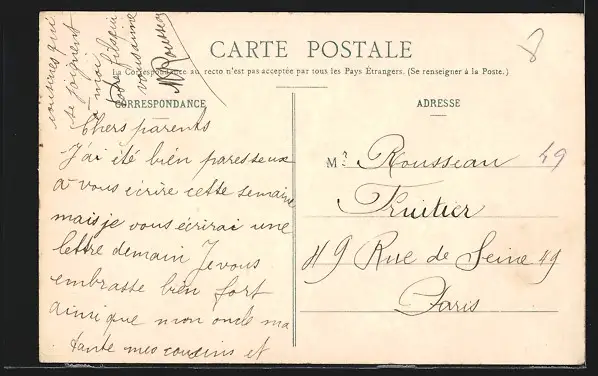 CARTE POSTALE
La Correspondance au recto n'est pas acceptée par tous les Pays Étrangers. (Se renseigner à la Poste.)
CORRESPONDANCE
Chers parents
J'ai été bien paresseux
a vous écrire cette semaine
mais je vous écrirai une
lettre demain Je vous
embrasse bien fort
ainsi que mon oncle ma
tante mes cousins et
cousines qui
se joignent
a moi
Votre fils qui
vous aime
Rousseau
ADRESSE
Mr Rousseau 49
Fruitier
49 Rue de Seine 49
Paris